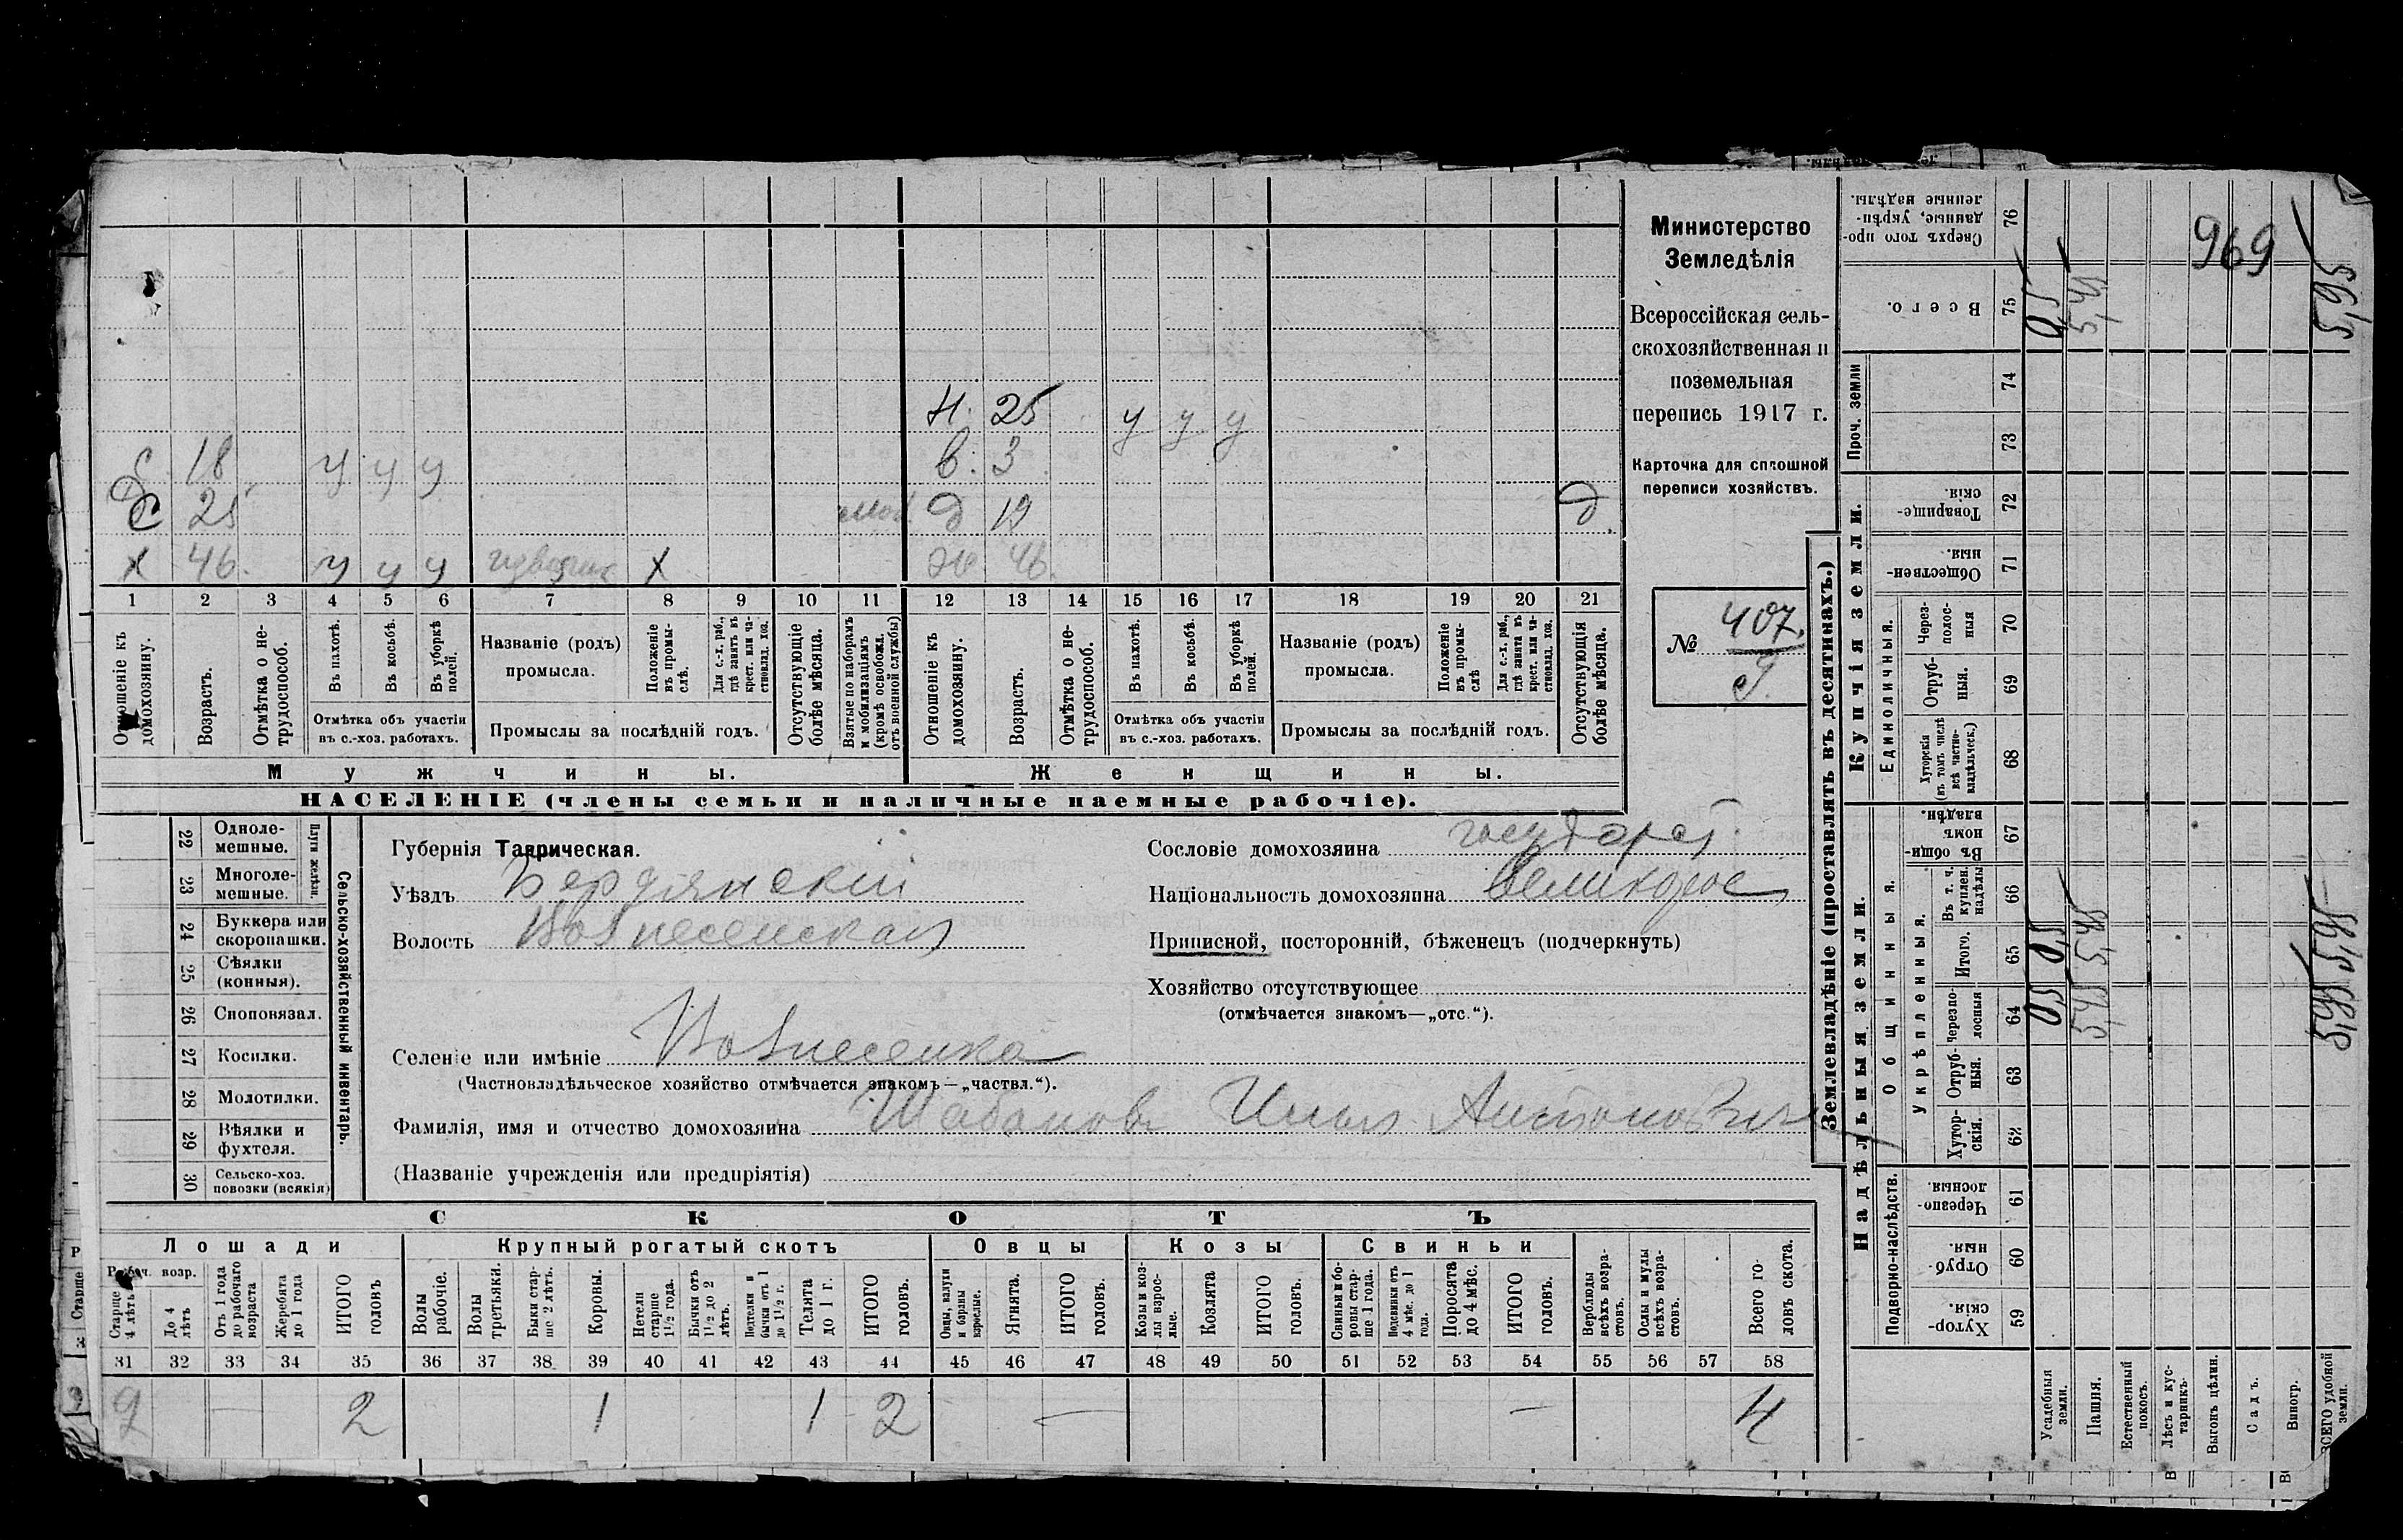 Н. 25 у у у
С. 18 у у у в. 3
С 25 моб. д 19 д
х 46. у у у извозчик х ж 46.
1 2 3 4 5 6 7 8 9 10 11 12 13 14 15 16 17 18 19 20 21
Отношеніе къ домохозяину.
Возрастъ.
Отмѣтка о не-трудоспособ.
Въ пахотѣ.
Въ косьбѣ.
Въ уборкѣ полей.
Отмѣтка объ участіи
въ с.-хоз. работахъ.
Названіе (родъ)
промысла.
Положеніе въ промы-слѣ.
Для с.-х. раб., гдѣ занятъ въ крест. или ча-стновлад. хоз.
Промыслы за послѣдній годъ.
Отсутствующіе болѣе мѣсяца.
Взятые по наборамъ и мобилизаціямъ (кромѣ освобожд. отъ военной службы)
Отношеніе къ домохозяину.
Возрастъ.
Отмѣтка о не-трудоспособ.
Въ пахотѣ.
Въ косьбѣ.
Въ уборкѣ полей.
Отмѣтка объ участіи
въ с.-хоз. работахъ.
Названіе (родъ)
промысла.
Положеніе въ промы-слѣ
Для с.-х. раб., гдѣ занята въ крест. или ча-стновлад. хоз.
Промыслы за послѣдній годъ.
Отсутствующія болѣе мѣсяца.
Мужчины. Женщины.
НАСЕЛЕНІЕ (члены семьи и наличные наемные рабочіе).
Министерство
Земледѣлія
Всероссійская сель-
скохозяйственная и
поземельная
перепись 1917 г.
Карточка для сплошной
переписи хозяйствъ.
№ 407.
Сельско-хозяйственный инвентарь.
Плуги желѣзн.
22 Одноле-мешные.
23 Многоле-мешные.
24 Буккера или скоропашки.
25 Сѣялки (конныя).
26 Сноповязал.
27 Косилки.
28 Молотилки.
29 Вѣялки и фухтеля.
30 Сельско-хоз. повозки (всякія)
Губернія Таврическая.
Уѣздъ Бердянскій
Волость Вознесенская
Селеніе или имѣніе Вознесенка
(Частновладѣльческое хозяйство отмѣчается знакомъ—„частвл.“).
Фамилія, имя и отчество домохозяина Шабановъ Илья Антоновичъ
(Названіе учрежденія или предпріятія)
Сословіе домохозяина государст.
Національность домохозяина великорос
Приписной, посторонній, бѣженецъ (подчеркнуть)
Хозяйство отсутствующее
(отмѣчается знакомъ—„отс.“).
СКОТЪ
Лошади Крупный рогатый скотъ Овцы Козы Свиньи
Рабоч. возр.
Старше 4 лѣтъ
До 4 лѣтъ
Отъ 1 года до рабочаго возраста
Жеребята до 1 года
ИТОГО головъ
Волы рабочіе.
Волы третьяки.
Быки стар-ше 2 лѣтъ.
Коровы.
Нетели старше 1½ года.
Бычки отъ 1½ до 2 лѣтъ.
Подтелки и бычки отъ 1 до 1½ г.
Телята до 1 г.
ИТОГО головъ.
Овцы, валухи и бараны взрослые.
Ягнята.
ИТОГО головъ.
Козы и коз-лы взрос-лые.
Козлята
ИТОГО головъ.
Свиньи и бо-ровы стар-ше 1 года.
Подсвинки отъ 4 мѣс. до 1 года.
Поросята до 4 мѣс.
ИТОГО головъ.
Верблюды всѣхъ возра-стовъ.
Ослы и мулы всѣхъ возра-стовъ.
Всего го-ловъ скота.
31 32 33 34 35 36 37 38 39 40 41 42 43 44 45 46 47 48 49 50 51 52 53 54 55 56 57 58
2 — 2 1 1 2 — — 4
Землевладѣніе (проставлять въ десятинахъ.)
Купчія земли.
Надѣльныя земли.
Сверхъ того про-данные, укрѣп-ленные надѣлы. 76
Всего. 75 0,5 5,45 5,95
969
Проч. земли 74 73
Товарище-скія. 72
Обществен-ныя. 71
Единоличныя.
Через-полос-ныя 70
Отруб-ныя. 69
Хуторскія (въ томъ числѣ всѣ частно-владѣльческ.) 68
Общинныя.
Въ общин-номъ владѣн. 67
Укрѣпленныя.
Въ т. ч. куплен. надѣлы 66
Итого. 65 0,5 5,45 5,95
Черезпо-лосныя 64 0,5 5,45 5,95
Отруб-ныя. 63
Хутор-скія. 62
Подворно-наслѣдств.
Черезпо-лосныя. 61
Отруб-ныя. 60
Хутор-скія. 59
Усадебныя земли.
Пашня.
Естественный покосъ.
Лѣсъ и кус-тарникъ
Выгонъ цѣлин.
Садъ.
Виногр.
ВСЕГО удобной земли.